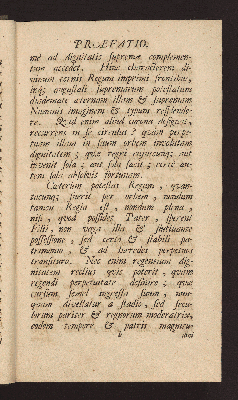 PRÆFATIO.
mè ad dignitatis supremæ complemen-
tum accedet. Hinc characterem di-
vinum cernis Regum imprimi frontibus,
inq; augustali supremorum potestatum
diademate æternam illam & supremam
Numinis imaginem & typum resplende-
re. Quid enim aliud corona
recurrens in se circulus? quàm perpe-
tuam illam in suum orbem involutam
dignitatem; quæ regni cujuscunq; aut
invenit sola; aut sola facit; certè au-
tem sola absolvit fortunam.
Cæterùm potestas Regum, quan-
tacunq; fuerit per orbem, nondum
tamen Regia est, nondum plena,
nisi, quod possidet Pater, sperent
Filii, non vaga illa & fluctuante
possessione; sed certo & stabili pa-
trimonio, & ad hæredes perpetuos
transituro. Nec enim regentium dig-
nitatem rectius quis poterit, quàm
regendi perpetuitate definire; quæ
cursum, semel ingressa suum, nun-
quam divellatur a stadio, sed secu-
lorum pariter & regnorum moderatrix,
eodem semper & patris magnitu-
b dini